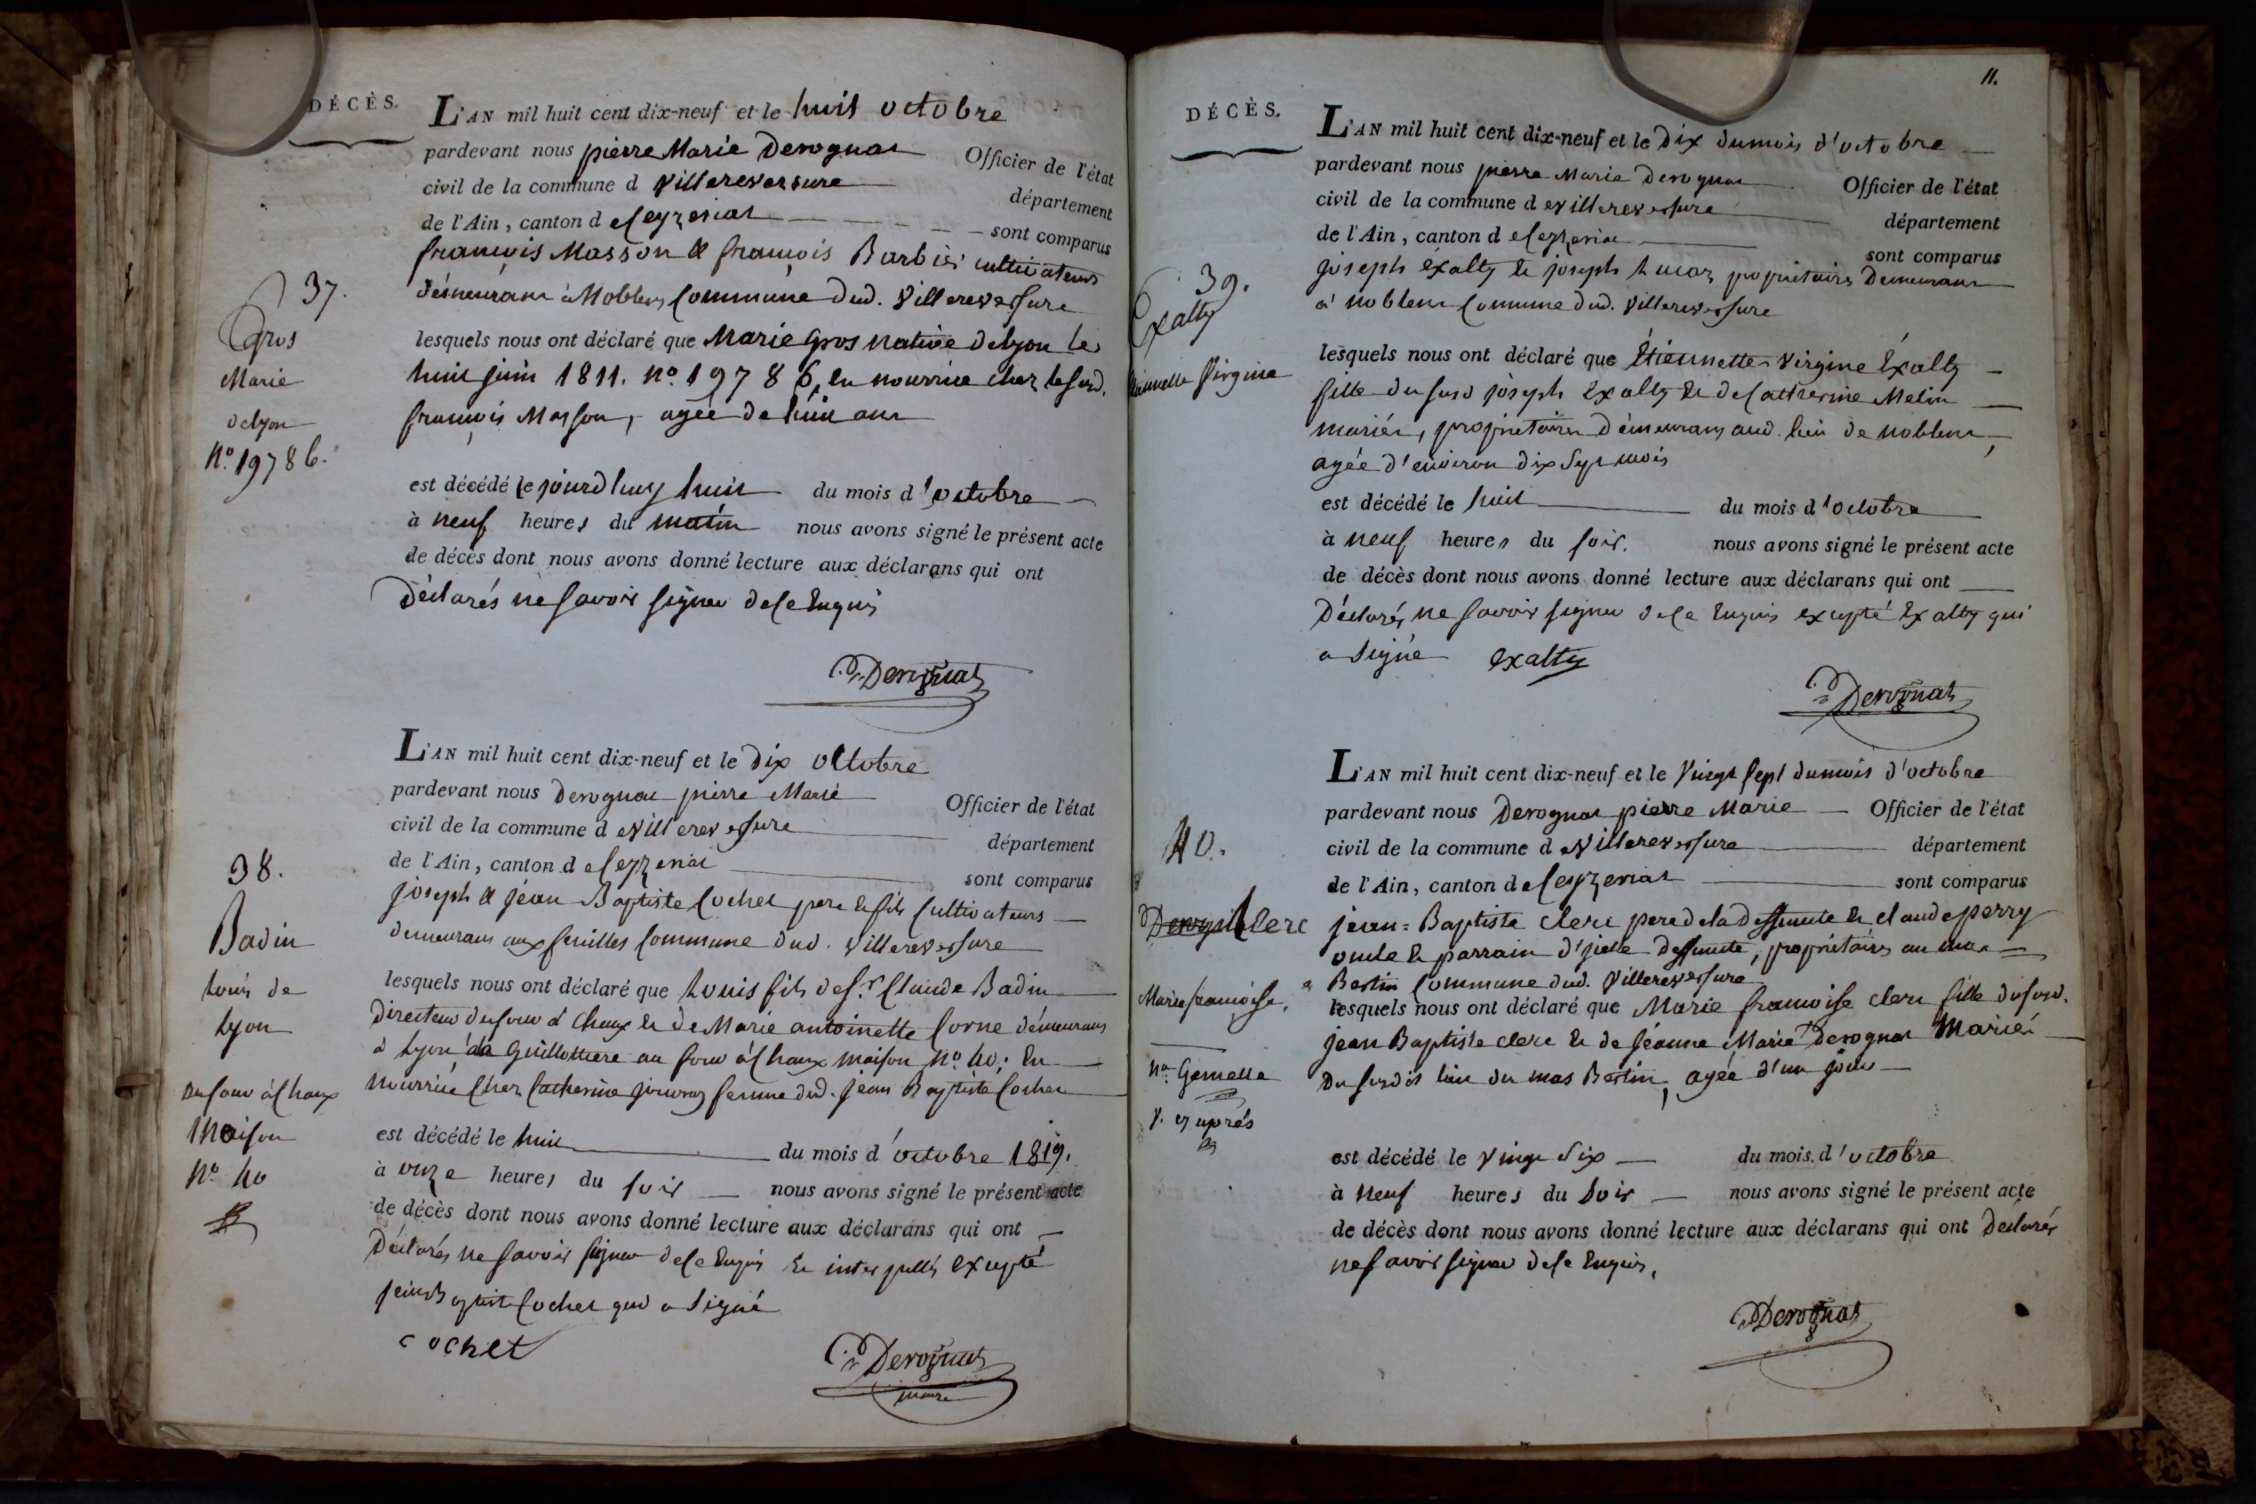 DÉCÈS.
L'AN mil huit cent dix-neuf et le huit octobre
pardevant nous pierre Marie Derognat Officier de l'état
civil de la commune d villereversure département
de l'Ain, canton d Ceyzeriat sont comparus
françois Masson & françois Barbier cultivateurs
demeurant à Noblens Commune dud. Villereversure
37.
Gros
Marie
de lyon
N.º 19786.
lesquels nous ont déclaré que Marie Gros native de lyon le
huit juin 1811. Nº 19786, en nourrice chez le susd.
françois Masson, agée de huit ans
est décédé le jourd'huy huit du mois d'octobre
à neuf heures du matin nous avons signé le présent acte
de décès dont nous avons donné lecture aux déclarans qui ont
Déclarés ne savoir signer de ce Enquis
Derognat
L'AN mil huit cent dix-neuf et le Dix Octobre
pardevant nous Derognat pierre Marie Officier de l'état
civil de la commune d e villereversure département
de l'Ain, canton d e Ceyzeriat sont comparus
joseph & jean Baptiste Cochet pere & fils Cultivateurs
demeurans aux feuilles Commune dud. villereversure
38.
Badin
Louis de
Lyon
au four à Chaux
Maison
Nº 40
lesquels nous ont déclaré que Louis fils de S.r Claude Badin
Directeur du four à Chaux & de Marie antoinette Corne démeurans
à Lyon à la Guillottiere au four à Chaux maison Nº 40; En
nourrice Chez Catherine femme dud. jean Baptiste Cochet
est décédé le huit du mois d'octobre 1819.
à onze heures du soir nous avons signé le présent acte
de décès dont nous avons donné lecture aux déclarans qui ont
Déclarés ne savoir signer de ce Enquis & interpellés excepté
jean Baptiste Cochet qui a signé
cochet
Derognat
maire
11.
DÉCÈS.
L'AN mil huit cent dix-neuf et le Dix du mois d'octobre
pardevant nous pierre Marie Derognat Officier de l'état
civil de la commune d e villereversure département
de l'Ain, canton d e Ceyzeriat sont comparus
joseph éxalty & joseph propriétaires Demeurant
à noblens Commune dud. villereversure
39.
Exalty
Virginie
lesquels nous ont déclaré que Etiennette Virgine Exalty
fille du susd joseph Exalty & de Catherine Melin
mariés, propriétaires démeurans aud. lieu de noblens,
agée d'environ dix sept mois
est décédé le huit du mois d'octobre
à neuf heures du soir. nous avons signé le présent acte
de décès dont nous avons donné lecture aux déclarans qui ont
Déclarés ne savoir signer de ce Enquis excepté Exalty qui
a signé exalty
Derognat
L'AN mil huit cent dix-neuf et le Vingt sept du mois d'octobre
pardevant nous Derognat pierre Marie Officier de l'état
civil de la commune d e villereversure département
de l'Ain, canton d e Ceyzeriat sont comparus
40.
Clerc
Marie françoise,
Nª Gemelle
V. cy après
jean-Baptiste clerc pere de la deffunte & claude perry
oncle & parrain d'icelle deffunte, propriétaires au mas
Bertin Commune dud. villereversure
lesquels nous ont déclaré que Marie françoise clerc fille du susd.
jean Baptiste clerc & de jeanne Marie Derognat Mariés
du susdit lieu du mas Bertin, agée d'un jour
est décédé le vingt Six du mois d'octobre
à neuf heures du soir nous avons signé le présent acte
de décès dont nous avons donné lecture aux déclarans qui ont Déclarés
ne savoir signer de ce Enquis.
Derognat